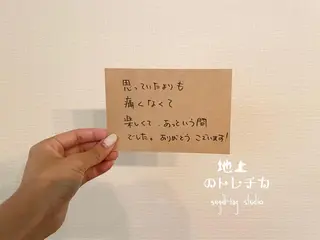 思っていたよりも
痛くなくて
楽しくて、あっという間
でした。ありがとうございます!
地上
のトレチカ